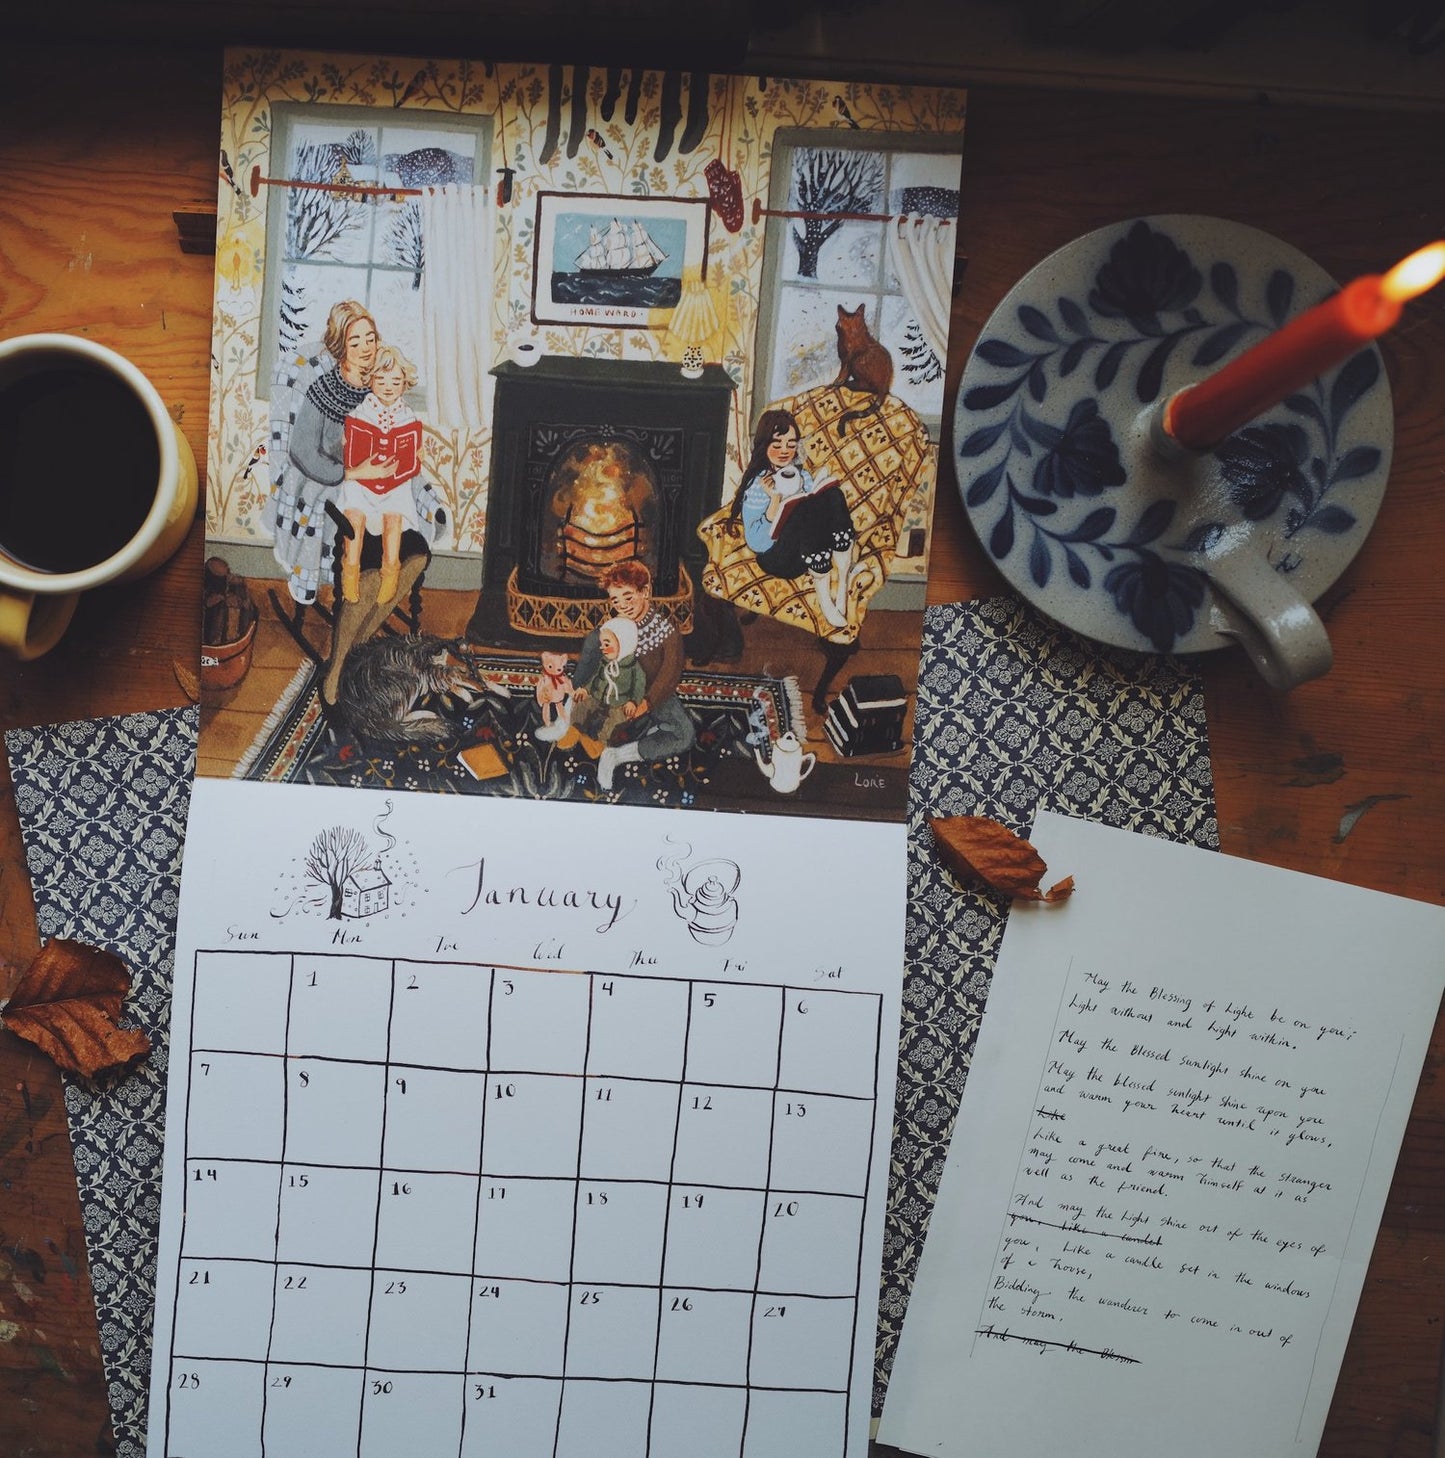 HOMEWARD.
LORE
January
Sun Mon Tue Wed Thu Fri Sat
1 2 3 4 5 6
7 8 9 10 11 12 13
14 15 16 17 18 19 20
21 22 23 24 25 26 27
28 29 30 31
May the Blessing of Light be on you;
Light without and Light within.
May the Blessed Sunlight shine on you
May the blessed sunlight shine upon you
and warm your heart until it glows,
Like
Like a great fire, so that the stranger
may come and warm himself at it as
well as the friend.
And may the Light shine out of the eyes of
you, Like a candel
you, Like a candle set in the windows
of a house,
Bidding the wanderer to come in out of
the storm.
And may the Blessin